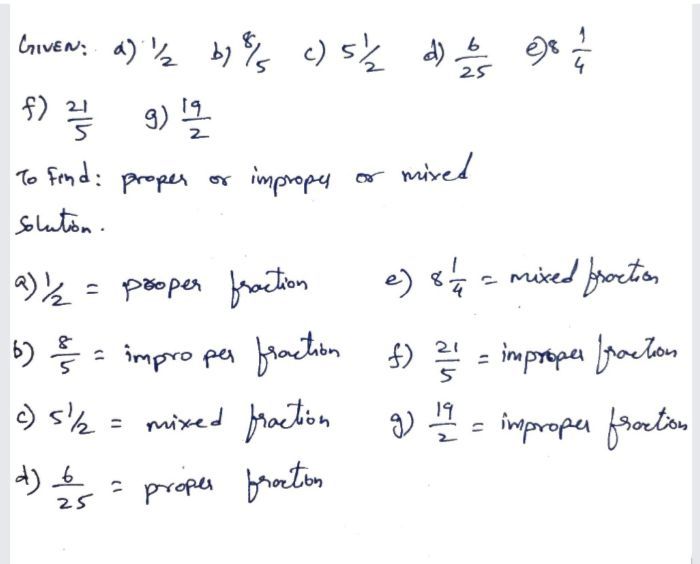 GIVEN: a) 1/2 b) 8/5 c) 5 1/2 d) 6/25 e) 8 1/4
f) 21/5 g) 19/2
To Find: proper or improper or mixed
Solution.
a) 1/2 = proper fraction
b) 8/5 = improper fraction
c) 5 1/2 = mixed fraction
d) 6/25 = proper fraction
e) 8 1/4 = mixed fraction
f) 21/5 = improper fraction
g) 19/2 = improper fraction